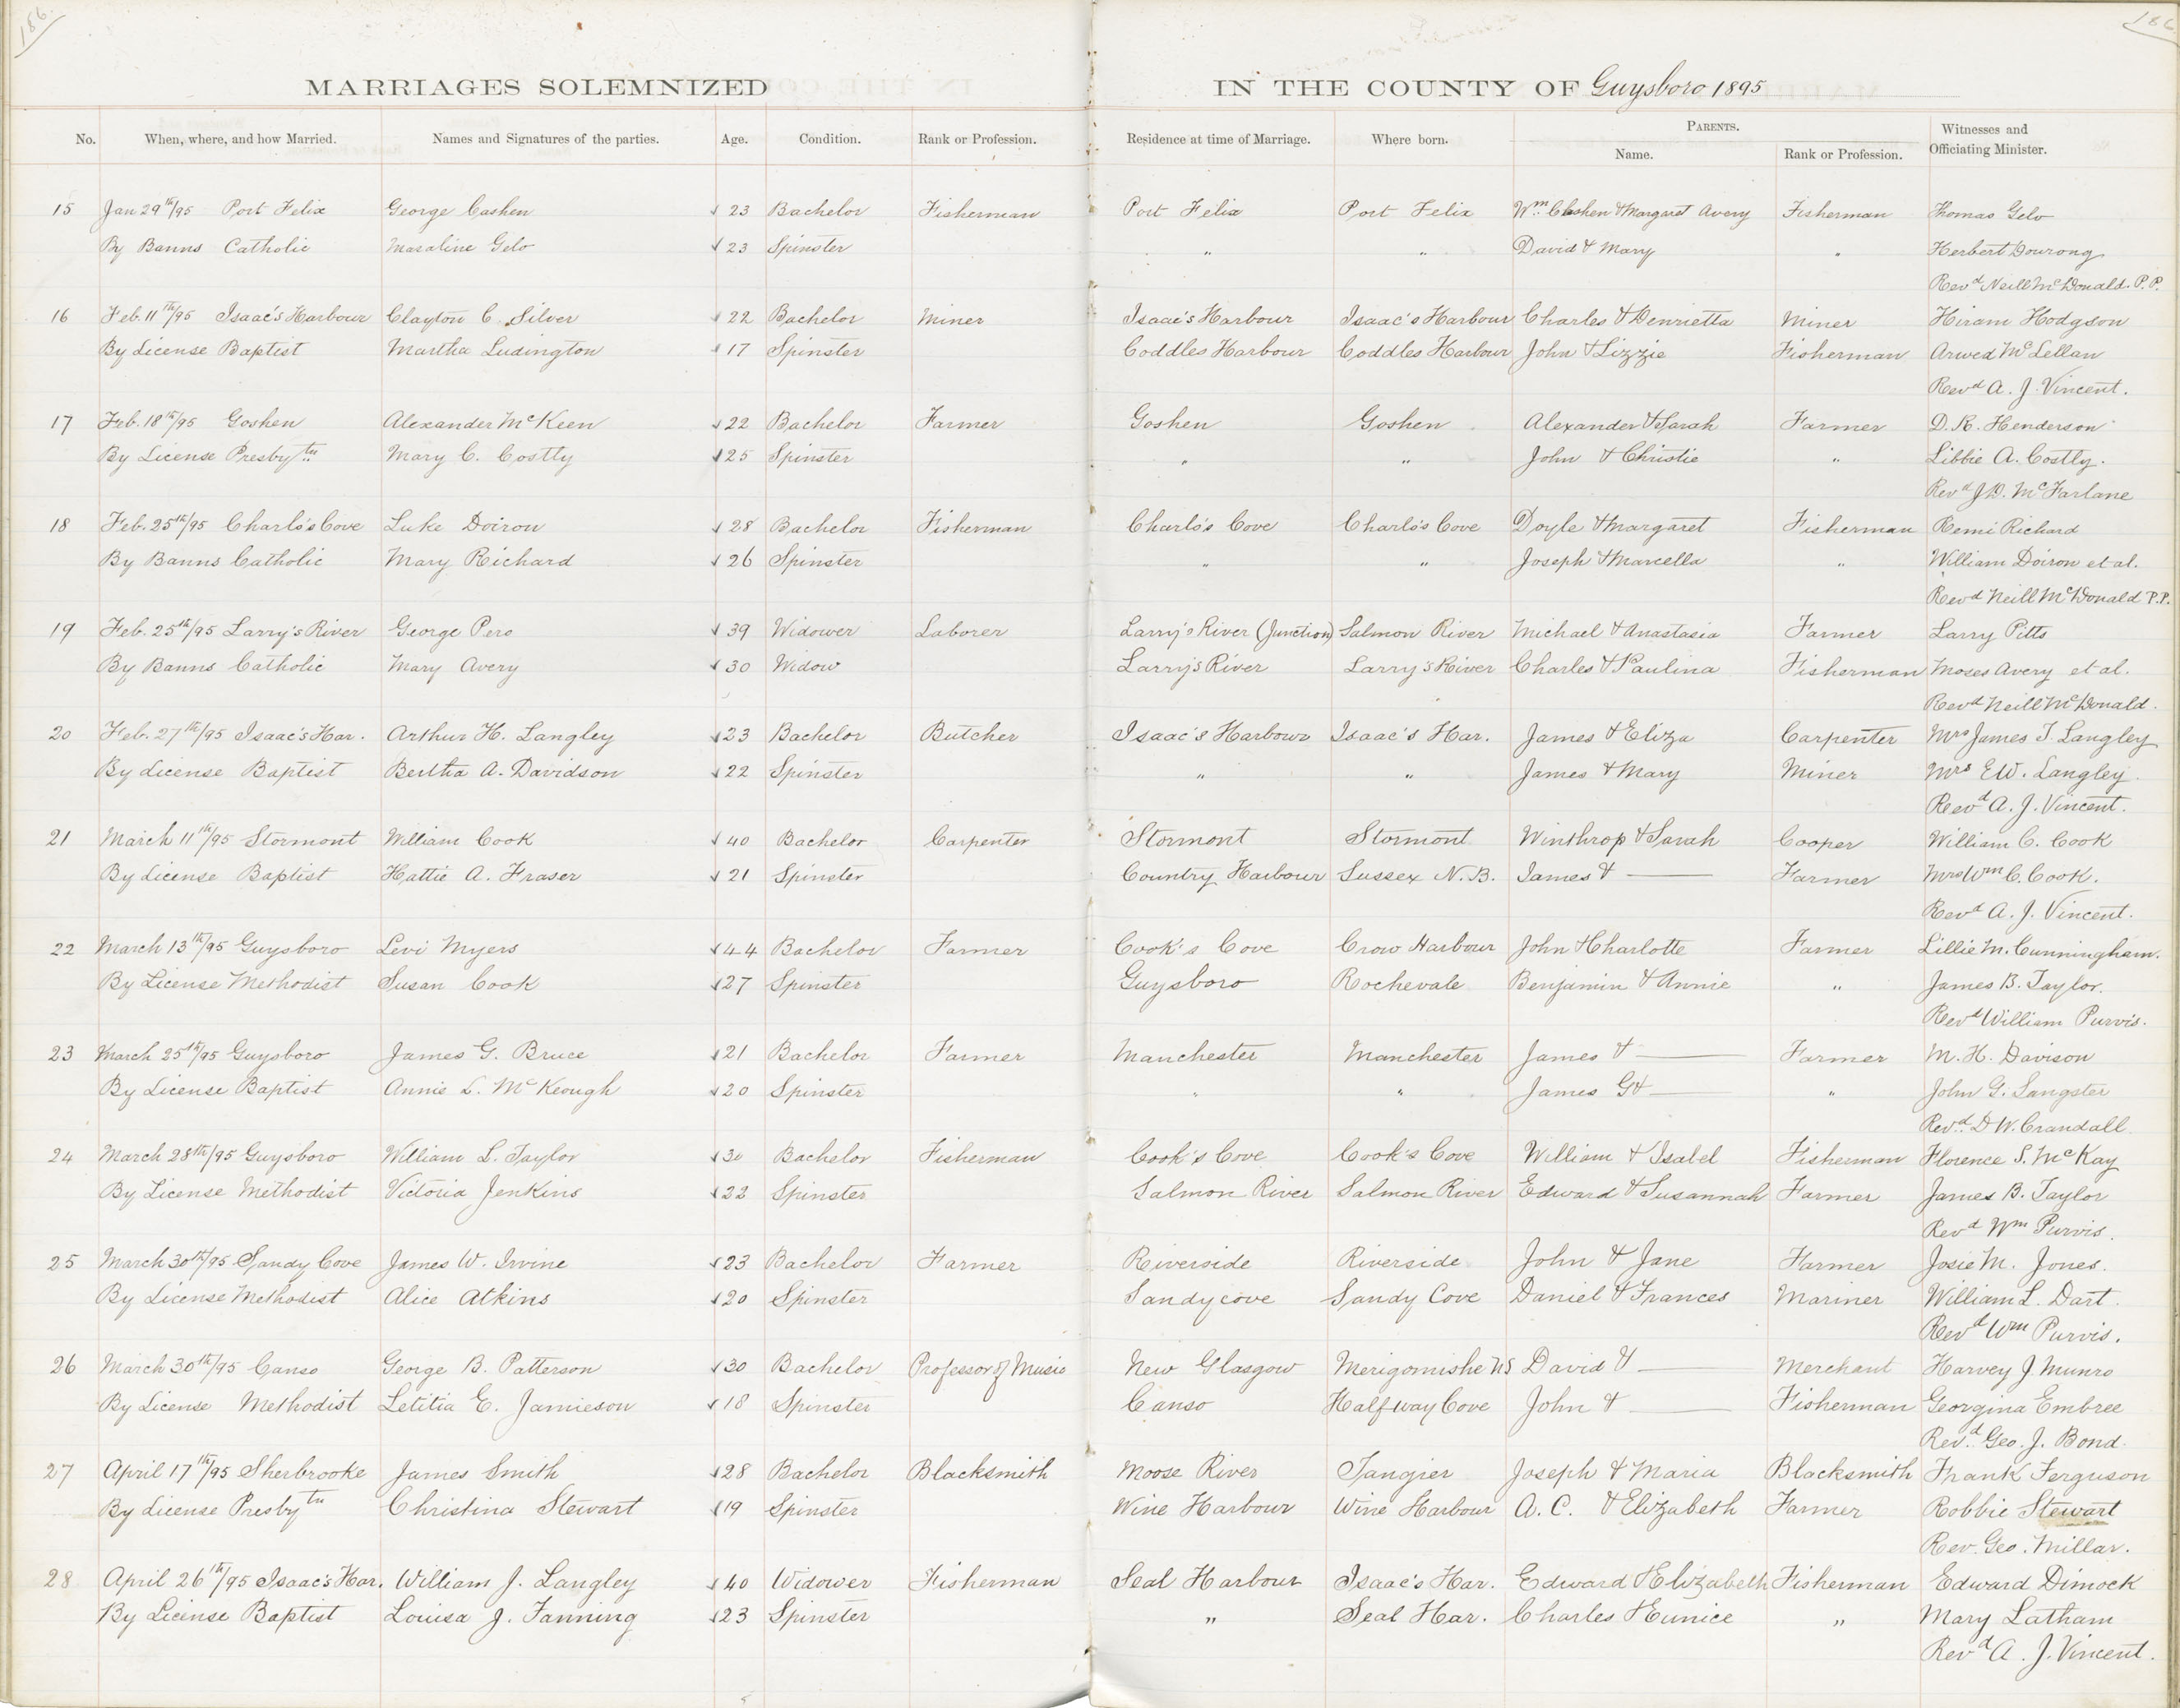 186
186
MARRIAGES SOLEMNIZED IN THE COUNTY OF Guysboro 1895
No. When, where, and how Married. Names and Signatures of the parties. Age. Condition. Rank or Profession. Residence at time of Marriage. Where born. PARENTS. Name. Rank or Profession. Witnesses and Officiating Minister.
15 Jan 29th/95 Port Felix George Cashen 23 Bachelor Fisherman Port Felix Port Felix Wm. Cashen & Margaret Avery Fisherman Thomas Gelo
By Banns Catholic Masaline Gelo 23 Spinster " " David & Mary " Herbert Dourong
Revd Neill McDonald. P.P.
16 Feb. 11th/95 Isaac's Harbour Clayton C. Silver 22 Bachelor Miner Isaac's Harbour Isaac's Harbour Charles & Henrietta Miner Hiram Hodgson
By License Baptist Martha Ludington 17 Spinster Coddles Harbour Coddles Harbour John & Lizzie Fisherman Arwed McLellan
Revd A. J. Vincent.
17 Feb. 18th/95 Goshen Alexander McKeen 22 Bachelor Farmer Goshen Goshen Alexander & Sarah Farmer D. R. Henderson
By License Presbytn Mary C. Costly 25 Spinster " " John & Christie " Libbie A. Costly.
Revd J.D. McFarlane
18 Feb. 25th/95 Charlo's Cove Luke Doiron 28 Bachelor Fisherman Charlo's Cove Charlo's Cove Doyle & Margaret Fisherman Remi Richard
By Banns Catholic Mary Richard 26 Spinster " " Joseph & Marcella " William Doiron et al.
Revd Neill McDonald P.P.
19 Feb. 25th/95 Larry's River George Pero 39 Widower Laborer Larry's River (Junction) Salmon River Michael & Anastasia Farmer Larry Pitts
By Banns Catholic Mary Avery 30 Widow Larry's River Larry's River Charles & Paulina Fisherman Moses Avery et al.
Revd Neill McDonald.
20 Feb. 27th/95 Isaac's Har. Arthur H. Langley 23 Bachelor Butcher Isaac's Harbour Isaac's Har. James & Eliza Carpenter Mrs James T. Langley
By License Baptist Bertha A. Davidson 22 Spinster " " James & Mary Miner Mrs E.W. Langley.
Revd A. J. Vincent.
21 March 11th/95 Stormont William Cook 40 Bachelor Carpenter Stormont Stormont Winthrop & Sarah Cooper William C. Cook
By License Baptist Hattie A. Fraser 21 Spinster Country Harbour Sussex N.B. James & — Farmer Mrs Wm C. Cook.
Revd A. J. Vincent.
22 March 13th/95 Guysboro Levi Myers 44 Bachelor Farmer Cook's Cove Crow Harbour John & Charlotte Farmer Lillie M. Cunningham.
By License Methodist Susan Cook 27 Spinster Guysboro Rochevale Benjamin & Annie " James B. Taylor.
Revd William Purvis.
23 March 25th/95 Guysboro James G. Bruce 21 Bachelor Farmer Manchester Manchester James & — Farmer M. H. Davison
By License Baptist Annie L. McKeough 20 Spinster " " James G & — " John G. Sangster
Revd. D W. Crandall
24 March 28th/95 Guysboro William L. Taylor 30 Bachelor Fisherman Cook's Cove Cook's Cove William & Isabel Fisherman Florence S. McKay
By License Methodist Victoria Jenkins 22 Spinster Salmon River Salmon River Edward & Susannah Farmer James B. Taylor
Revd Wm Purvis.
25 March 30th/95 Sandy Cove James W. Irvine 23 Bachelor Farmer Riverside Riverside John & Jane Farmer Josie M. Jones.
By License Methodist Alice Atkins 20 Spinster Sandycove Sandy Cove Daniel & Frances Mariner William L. Dart.
Revd Wm Purvis.
26 March 30th/95 Canso George B. Patterson 30 Bachelor Professor of Music New Glasgow Merigomishe NS David & — Merchant Harvey J. Munro
By License Methodist Letitia E. Jamieson 18 Spinster Canso Halfway Cove John & — Fisherman Georgina Embree
Revd. Geo. J. Bond.
27 April 17th/95 Sherbrooke James Smith 28 Bachelor Blacksmith Moose River Tangier Joseph & Maria Blacksmith Frank Ferguson
By License Presbytn Christina Stewart 19 Spinster Wine Harbour Wine Harbour A. C. & Elizabeth Farmer Robbie Stewart
Rev. Geo. Millar.
28 April 26th/95 Isaac's Har. William J. Langley 40 Widower Fisherman Seal Harbour Isaac's Har. Edward & Elizabeth Fisherman Edward Dimock
By License Baptist Louisa J. Fanning 23 Spinster " Seal Har. Charles & Eunice " Mary Latham
Revd A. J. Vincent.